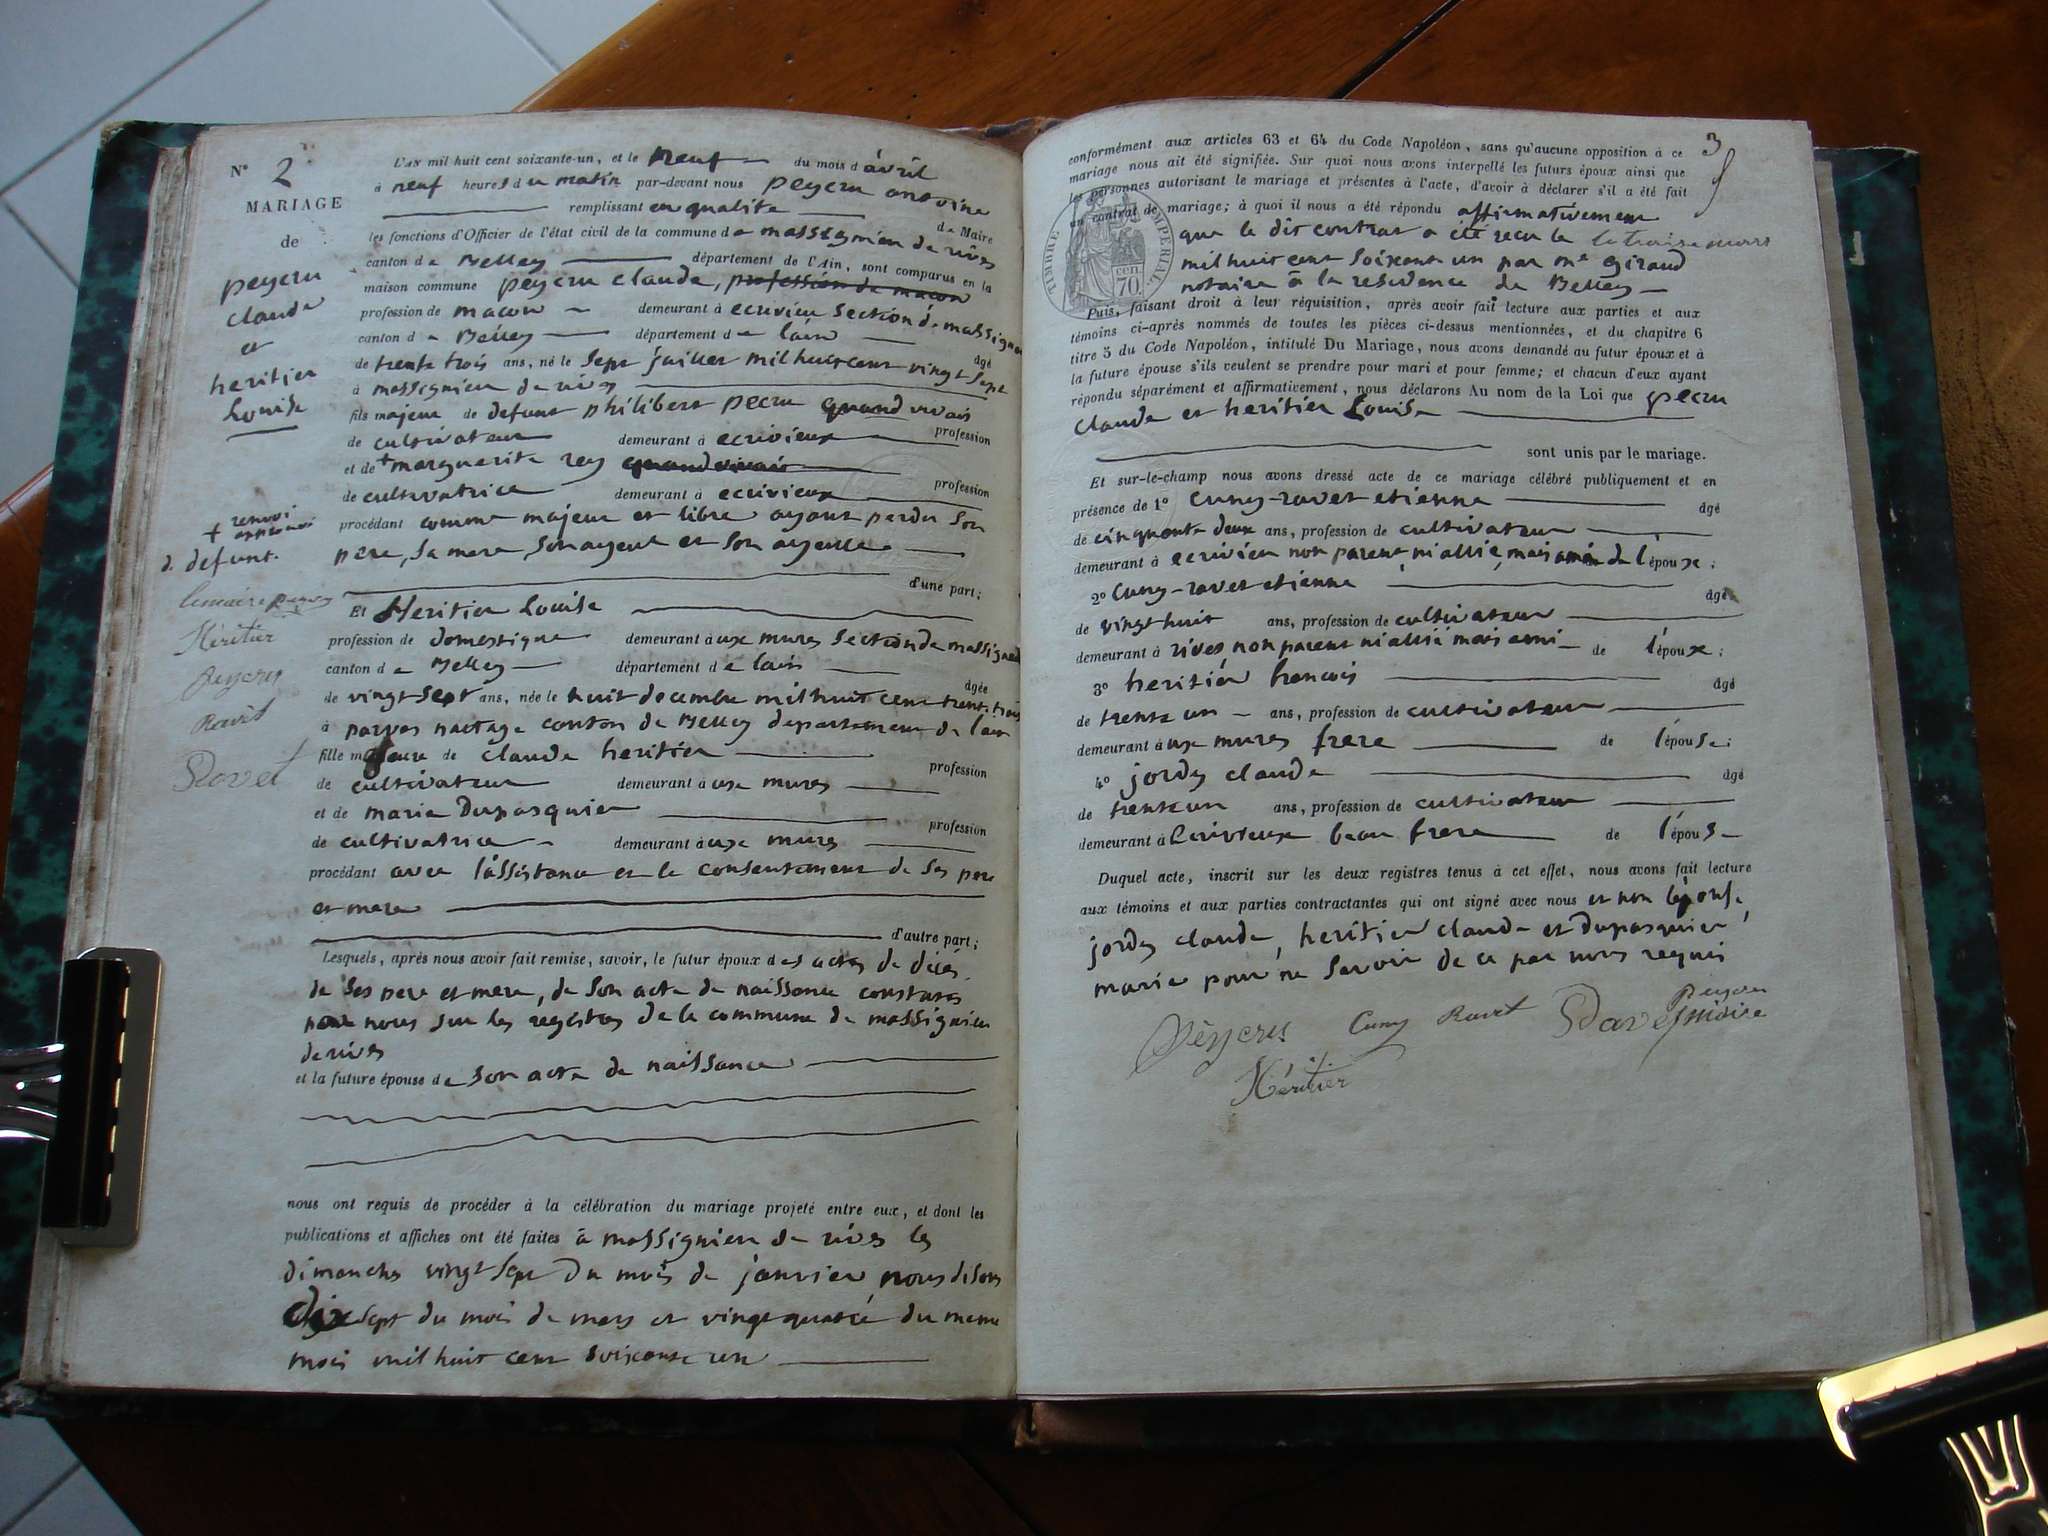 N° 2
MARIAGE
de
peycru
claude
et
heritier
Louise
+ renvoi
approuvé
d. defunt.
lemaire peycru
Héritier
Peycru
Ravet
Ravet
L'AN mil huit cent soixante-un, et le neuf du mois d avril
à neuf heures du matin par-devant nous peycru
remplissant en qualite de Maire
les fonctions d'Officier de l'état civil de la commune de massignieu de rives
canton de Belley département de l'Ain, sont comparus en la
maison commune peycru claude, profession de macon
profession de macon demeurant à ecrivieu section de massigni
canton de Belley département de lain âgé
de trente trois ans, né le sept juillet mil huit cent vingt sept
à massignieu de rives
fils majeur de defunt philibert pecru quand vivais profession
de cultivateur demeurant à ecrivieux
et de + marguerite rey quand vivais profession
de cultivatrice demeurant à ecrivieux
procédant comme majeur et libre ayant perdu son
pere, sa mere, son ayeul et son ayeulle
d'une part;
Et Heritier Louise
profession de domestique demeurant à aux mures section de massignieu
canton de Belley département de lain âgée
de vingt sept ans, née le huit decembre mil huit cent trente trois
à parves nattage canton de Belley departement de lain
fille majeure de claude heritier profession
de cultivateur demeurant à aux mures
et de marie Dupasquier profession
de cultivatrice demeurant à aux mures
procédant avec l'assistance et le consentement de ses pere
et mere
d'autre part;
Lesquels, après nous avoir fait remise, savoir, le futur époux des actes de décés
de ses pere et mere, de son acte de naissance constatés
nous sur les registres de la commune de massignieu
de rives
et la future épouse de son acte de naissance
nous ont requis de procéder à la célébration du mariage projeté entre eux, et dont les
publications et affiches ont été faites à massignieu de rives les
dimanches vingt sept du mois de janvier nous disons
dix sept du mois de mars et vingt quatre du meme
mois mil huit cent soixante un
3
conformément aux articles 63 et 64 du Code Napoléon, sans qu'aucune opposition à ce
mariage nous ait été signifiée. Sur quoi nous avons interpellé les futurs époux ainsi que
les personnes autorisant le mariage et présentes à l'acte, d'avoir à déclarer s'il a été fait
un contrat de mariage; à quoi il nous a été répondu affirmativement
que le dit contrat a été recu le le treise mars
mil huit cent soixante un par me Giraud
notaire à la residence de Belley
TIMBRE IMPERIAL
70 cen
Puis, faisant droit à leur réquisition, après avoir fait lecture aux parties et aux
témoins ci-après nommés de toutes les pièces ci-dessus mentionnées, et du chapitre 6
titre 5 du Code Napoléon, intitulé Du Mariage, nous avons demandé au futur époux et à
la future épouse s'ils veulent se prendre pour mari et pour femme; et chacun d'eux ayant
répondu séparément et affirmativement, nous déclarons Au nom de la Loi que pecru
claude et heritier Louise
sont unis par le mariage.
Et sur-le-champ nous avons dressé acte de ce mariage célébré publiquement et en
présence de 1° Cuny-ravet etienne âgé
de cinquante deux ans, profession de cultivateur
demeurant à ecrivieu non parent ni allié, mais ami de l'époux;
2° Cuny-ravet etienne âgé
de vingt huit ans, profession de cultivateur
demeurant à rives non parent ni allié mais ami de l'époux;
3° heritier francois âgé
de trente un ans, profession de cultivateur
demeurant à aux mures frere de l'épouse;
4° jordy claude âgé
de trente un ans, profession de cultivateur
demeurant à Ecrivieux beau frere de l'épous
Duquel acte, inscrit sur les deux registres tenus à cet effet, nous avons fait lecture
aux témoins et aux parties contractantes qui ont signé avec nous et non l'épouse
jordy claude, heritier claude et dupasquier
marie pour ne savoir de ce par nous requis
Pèycru Cuny Ravet Ravet Peycru
maire
Héritier